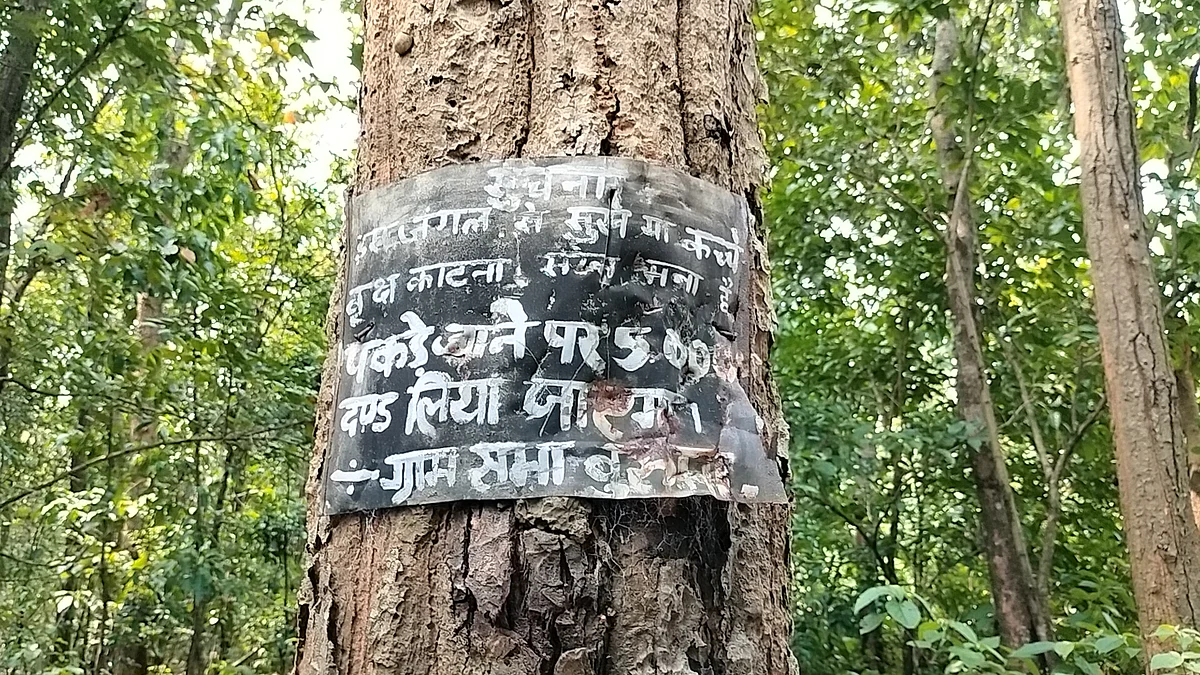 सुचना
इस जंगल से सुखे या कच्चे
वृक्ष काटना सख्त मना है
पकड़े जाने पर 5 00
दण्ड लिया जाएगा।
÷ ग्राम सभा